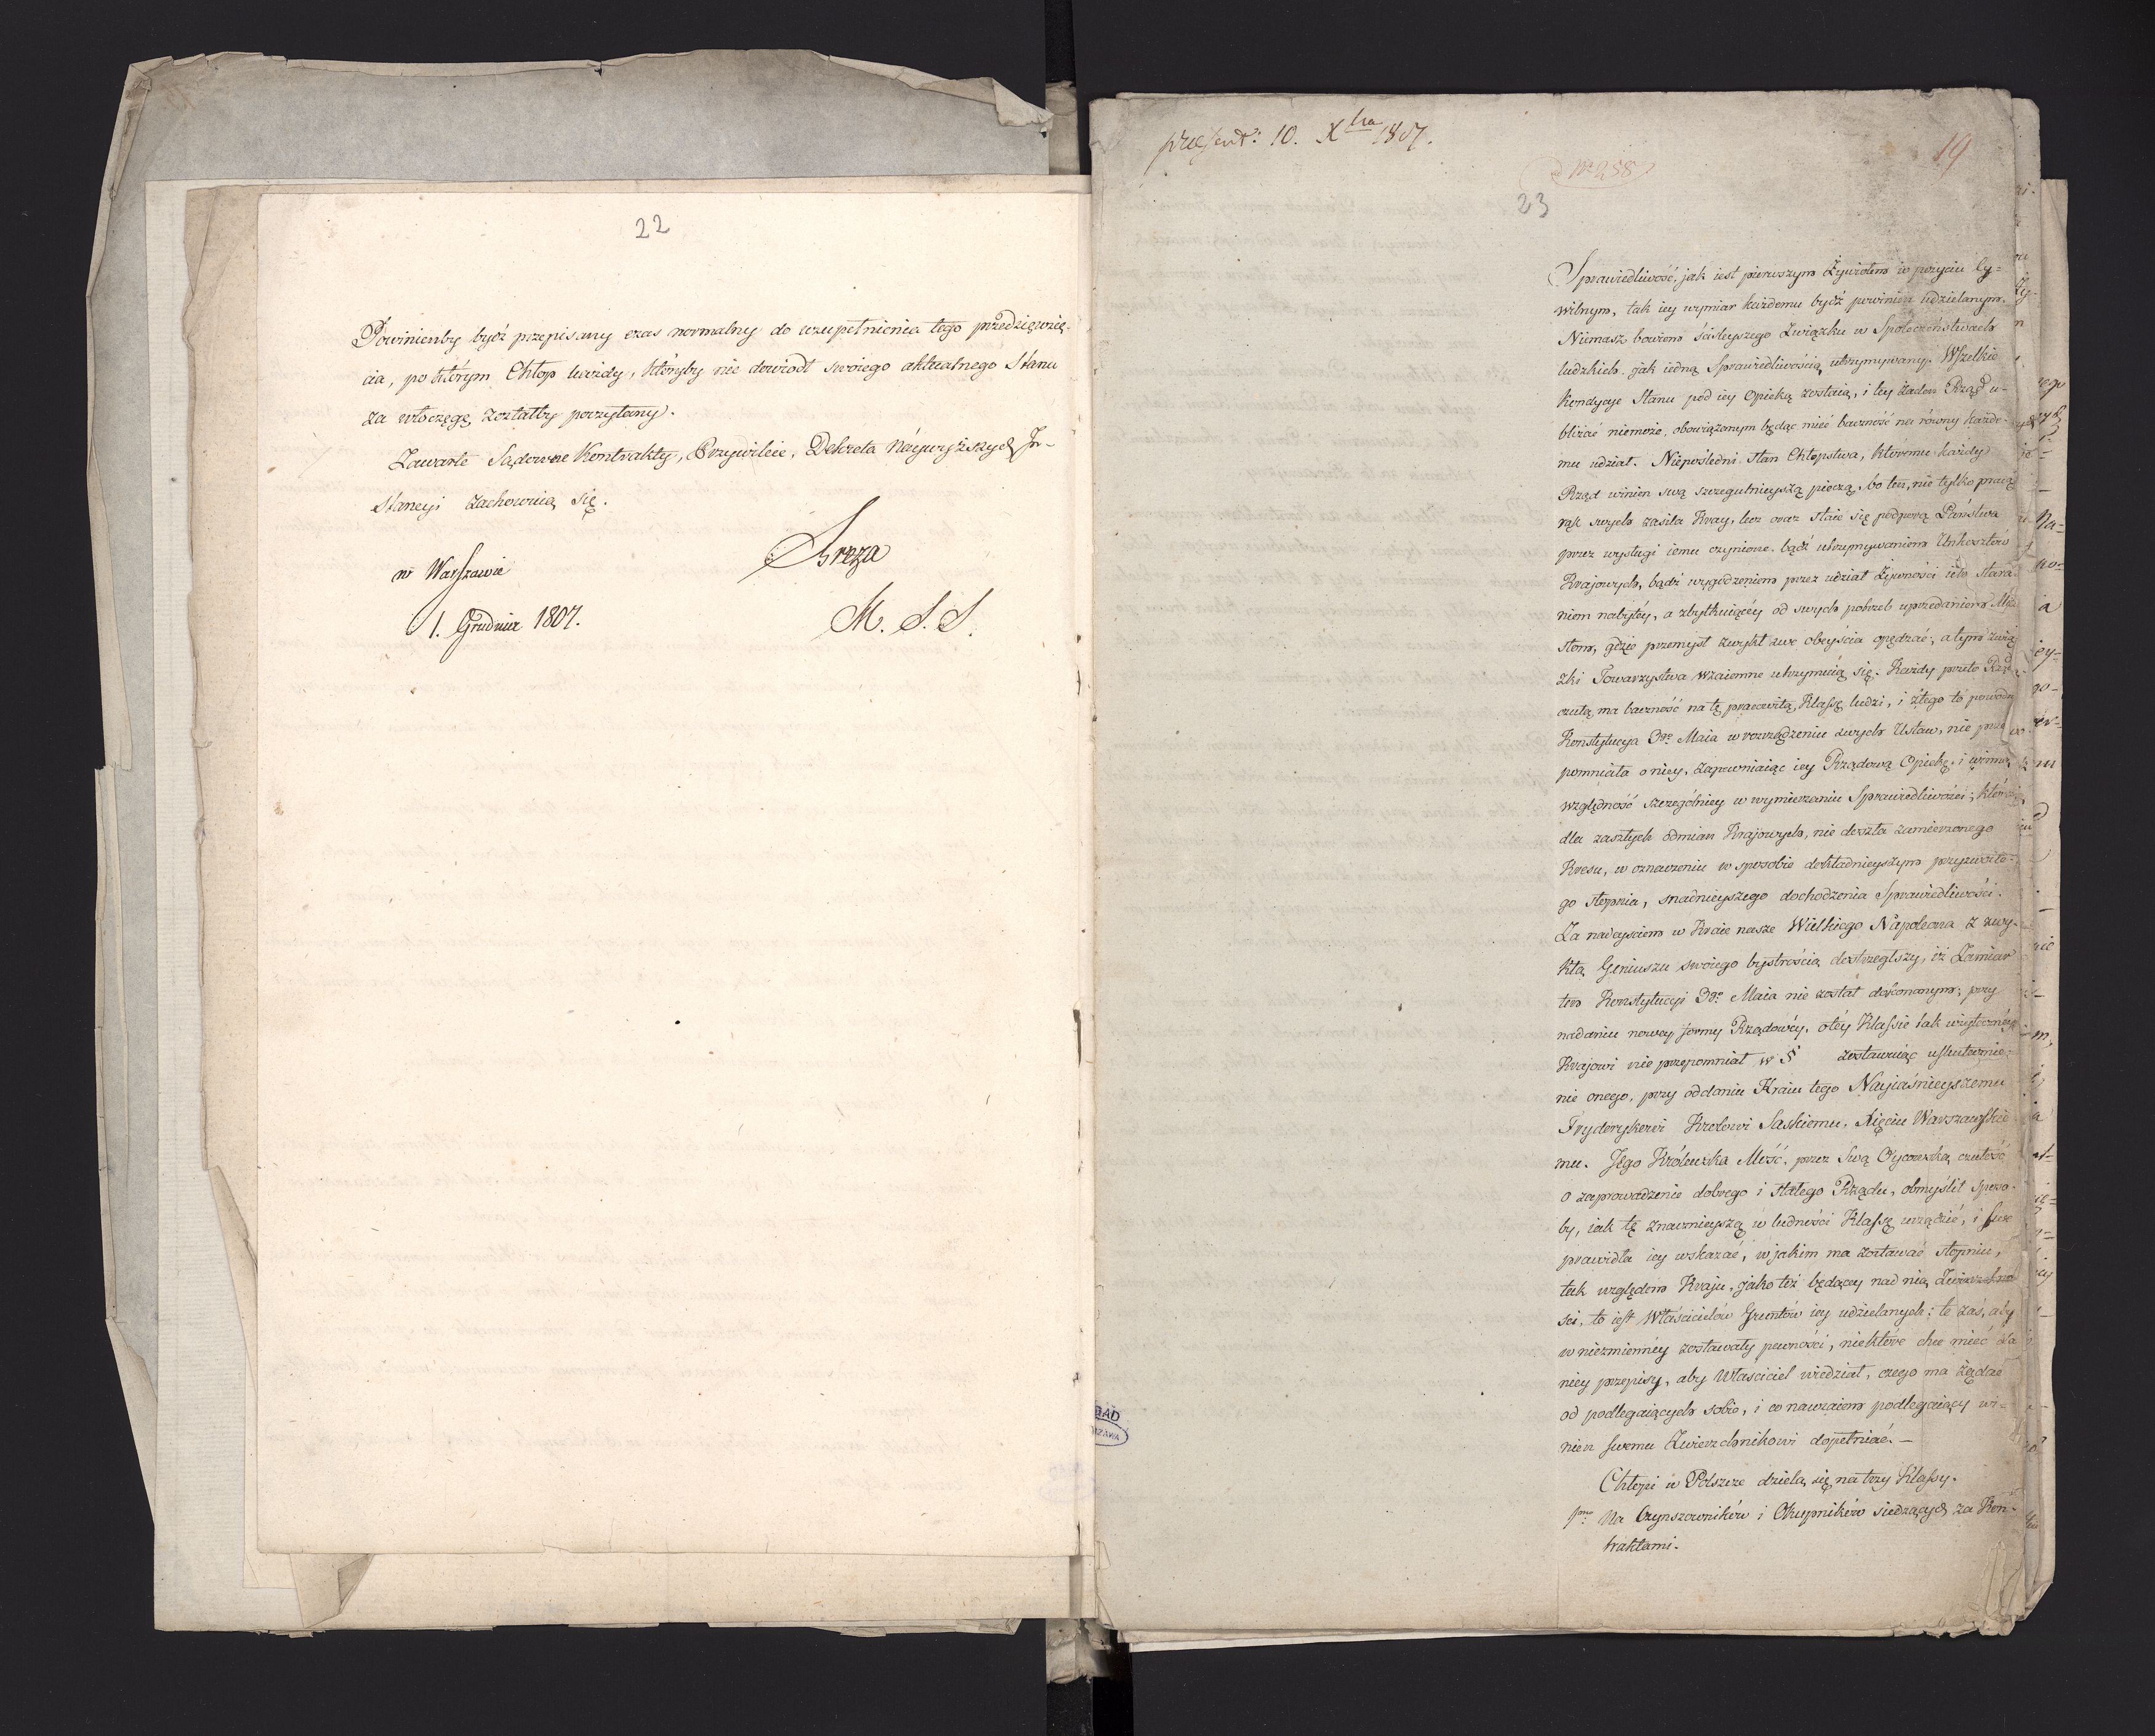 22
Powinienby być przepisany czas normalny do uzupełnienia tego przedsięwzię-
cia, po którym Chłop każdy, któryby nie dowiódł swoiego aktualnego Stanu
za włóczęgę zostałby poczytany.
Zawarte Sądowne Kontrakty, Przywileie, Dekreta Náywyższych In-
stancyi zachowuią się.
w Warszawie
1. Grudnia 1807.
Breza
M. S. S.
praesent: 10. Xbra 1807.
19
23
Sprawiedliwość, jak iest pierwszym Żywiołem w pożyciu Cy=
wilnym, tak iey wymiar każdemu bydź powinien udzielanym.
Niemasz bowiem ściśleyszego Związku w Społeczeństwach
ludzkich jak iedną Sprawiedliwością utrzymywany. Wszelkie
Kondycye Stanu pod iey Opieką zostaią, i tey żaden Rząd u-
bliżać niemoże, obowiązanym będąc mieć baczność na równy każde-
mu udział. Niepośledni Stan Chłopstwa, któremu każdy
Rząd winien swą szczegulnieyszą pieczą, bo ten, nie tylko pracą
rąk swych zasila Kray, lecz oraz staie się podporą Państwa
przez wysługi iemu czynione bądź utrzymywaniem Unkosztów
Krajowych, bądź wygodzeniem przez udział Żywności ich stara
niem nabytéy, a zbytkuiącéy od swych potrzeb uprzedaniem
stom, gdzie przemysł zwykł swe obeyścia opędzać, a tym
zki Towarzystwa wzaiemne utrzymuią się. Każdy przeto
czułą ma baczność na tę pracowitą Klassę ludzi, i z tego to powodu
Konstytucya 3go Maia w rozrządzeniu swych Ustaw, nie
pomniała o niey, zapewniaiąc iey Rządową Opiekę, i
względność szczególniey w wymierzaniu Sprawiedliwości;
dla zaszłych odmian Krajowych, nie doszła zamierzonego
Kresu, w oznaczeniu w sposobie dokładnieyszym przyzwoite-
go stopnia, snadnieyszego dochodzenia Sprawiedliwości.
Za nadeyściem w Kraie nasze Wielkiego Napoleona z zwy-
kłą Geniuszu swoiego bystrością dostrzegłszy, iż Zamiar
ten Konstytucyi 3go Maia nie został dokonanym; przy
nadaniu nowey formy Rządowéy, o téy Klassie tak użyteczney
Krajowi nie przepomniał w § zostawuiąc uskutecznie-
nie onego, przy oddaniu Kraiu tego Nayiaśnieyszemu
Fryderykowi Krolowi Saskiemu, Xięciu Warszawskie
mu. Jego Królewska Mość, przez Swą Oycowską czułość
o zaprowadzenie dobrego i stałego Rządu, obmyślił sposo-
by, iak tę znacznieyszą w ludności Klassę urządzić, i swe
prawidła iey wskazać, w jakim ma zostawać stopniu,
tak względem Kraju, jako też będącey nad nią Zwierzchno
sci, to iest Właścicielów Gruntów iey udzielanych; te zaś, aby
w niezmiennéy zostawały pewności, niektóre chce mieć dla
niey przepisy, aby Właściciel wiedział, czego ma żądać
od podlegaiących sobie, i co nawzaiem podlegaiący wi-
nien swemu Zwierzchnikowi dopełniać. —
Chłopi w Polszcze dzielą się na trzy Klassy.
1mo Na Czynszowników i Okupników siedzących za Kon-
traktami.